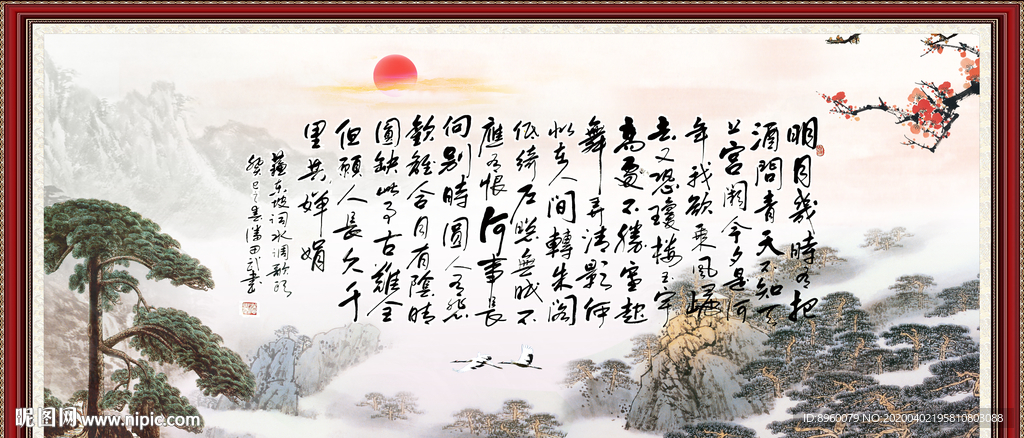 明月幾時有把
酒問青天不知天
上宮闕今夕是何
年我欲乘風歸
去又恐瓊樓玉宇
高處不勝寒起
舞弄清影何
似在人間轉朱閣
低綺戶照無眠不
應有恨何事長
向別時圓人有悲
歡離合月有陰晴
圓缺此事古難全
但願人長久千
里共嬋娟
蘇東坡詞水調歌頭
癸巳之書
昵图网 www.nipic.com
ID:8960079 NO:20200402195810803088